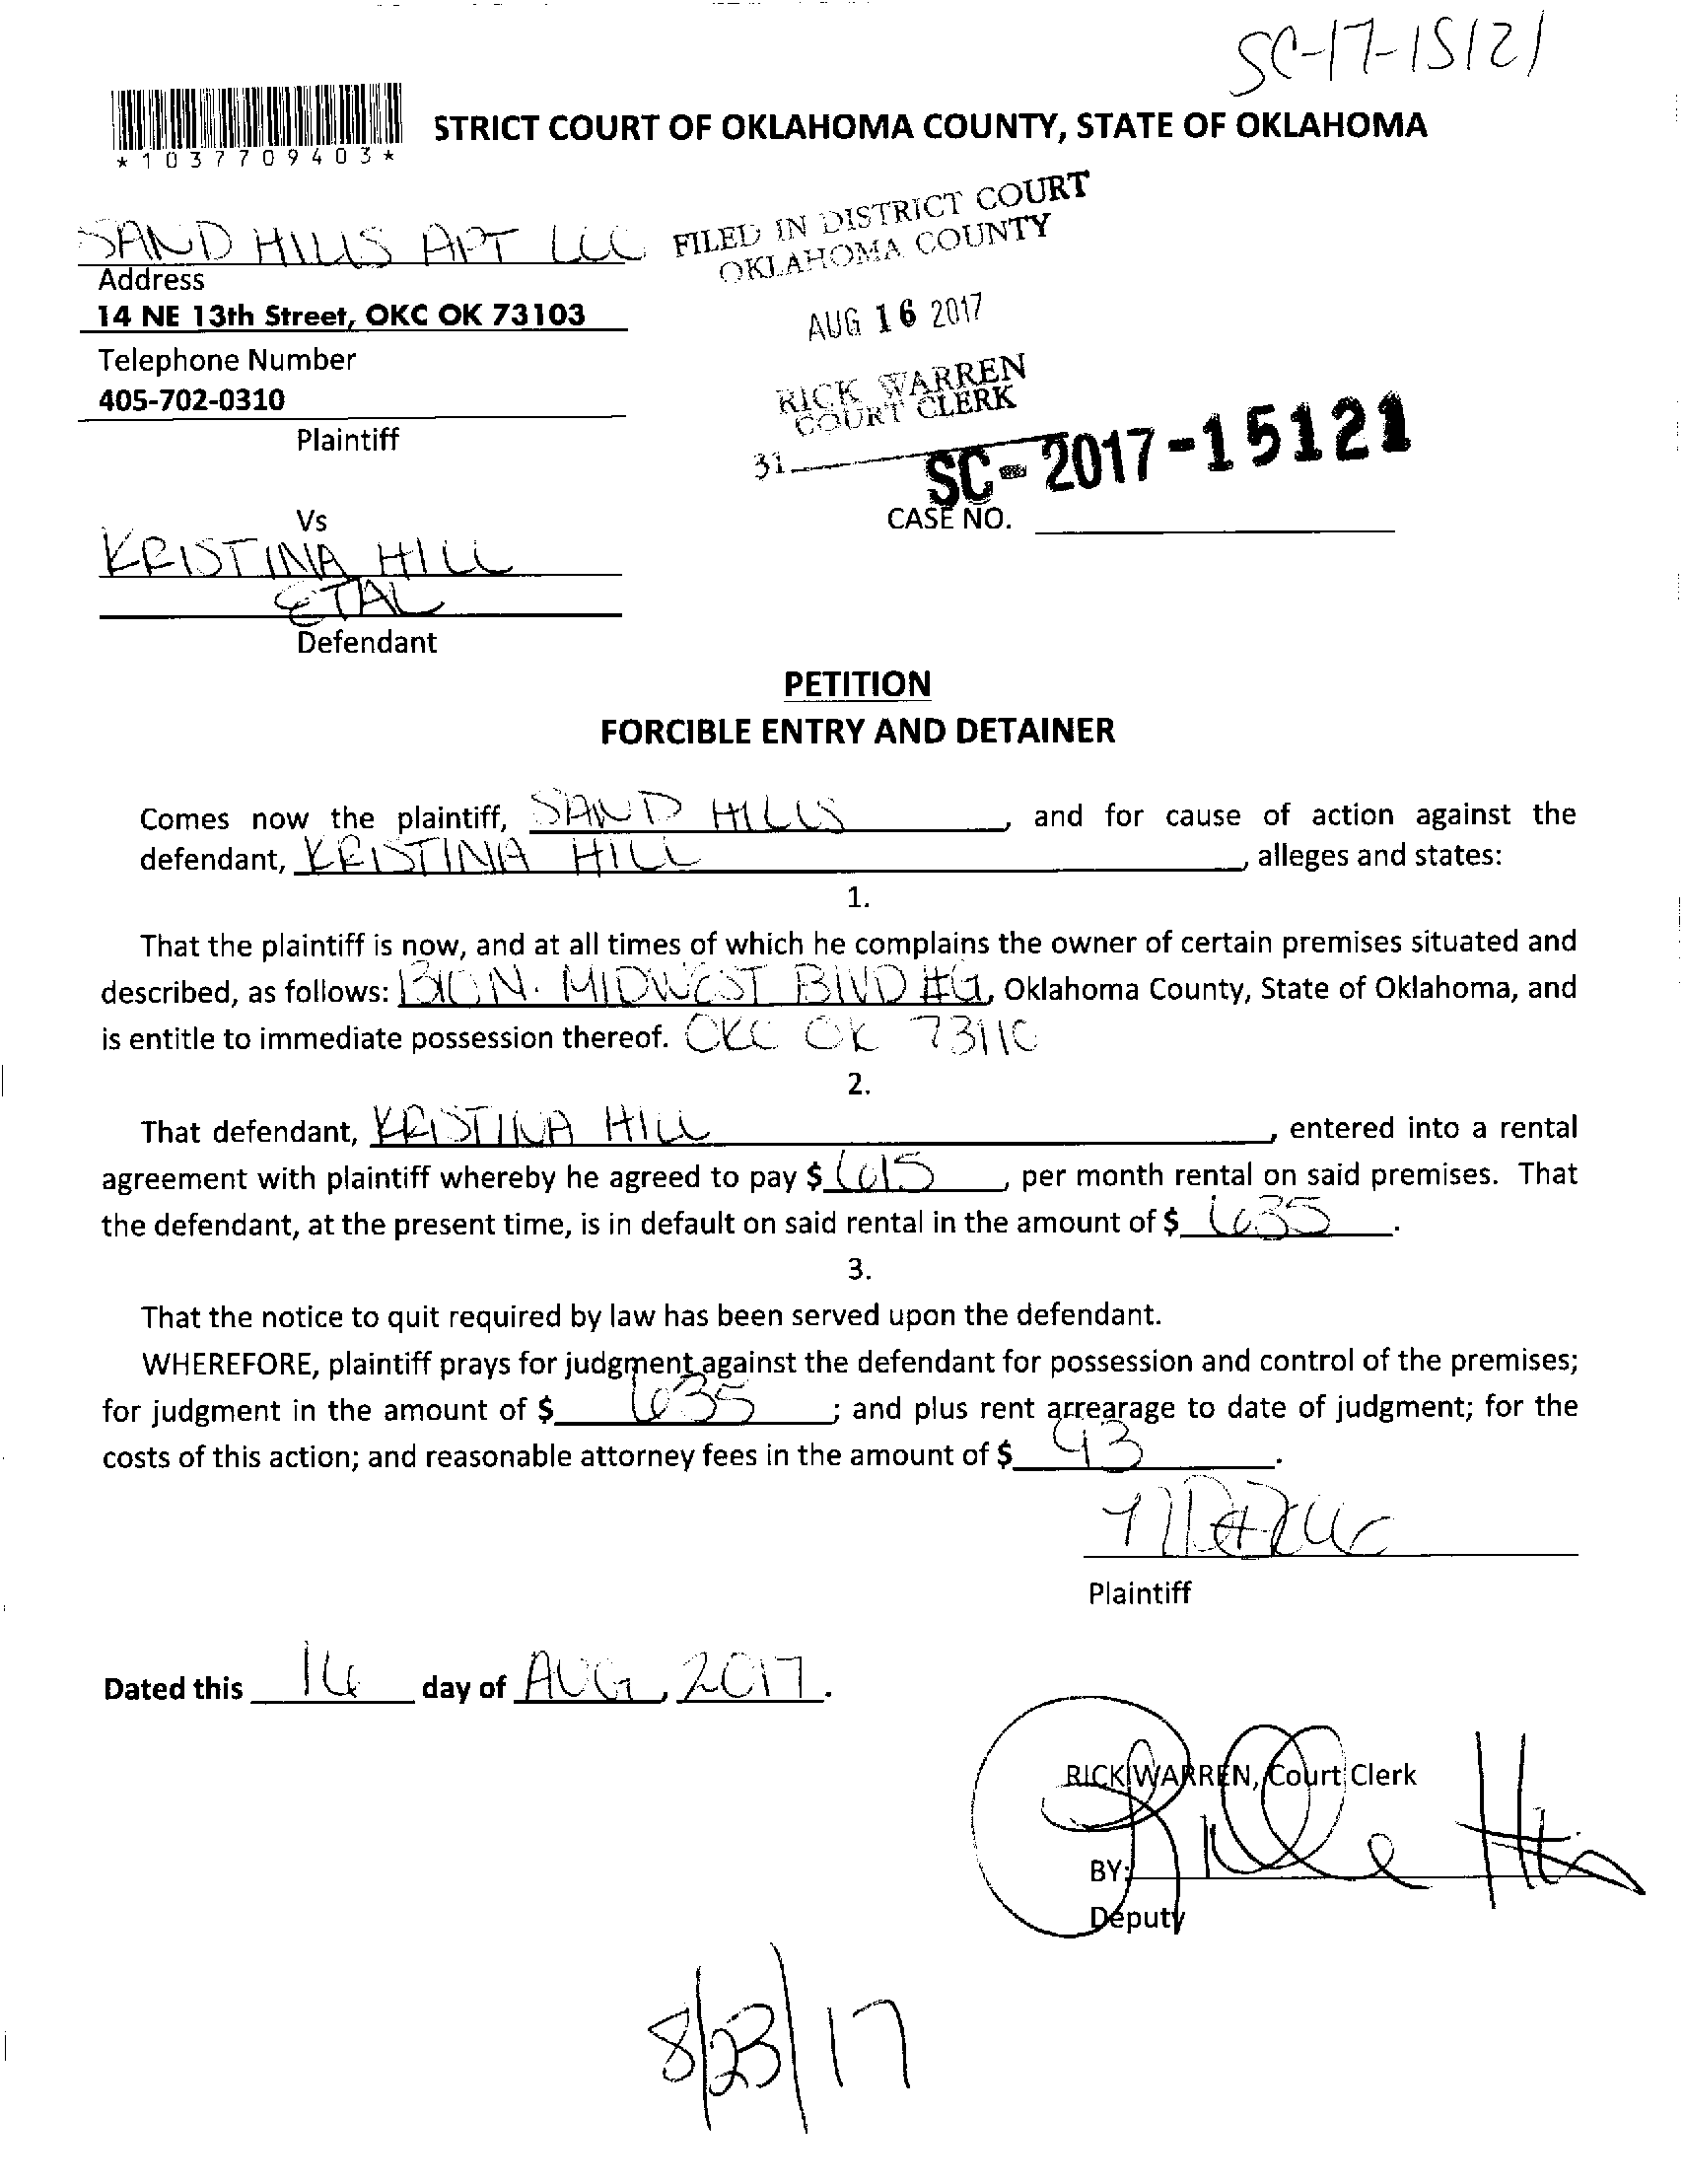 SC-17-15121
STRICT COURT OF OKLAHOMA COUNTY, STATE OF OKLAHOMA
*1037709403*
SAND HILLS APT LLC
FILED IN DISTRICT COURT
OKLAHOMA COUNTY
Address
14 NE 13th Street, OKC OK 73103
AUG 16 2017
Telephone Number
405-702-0310
RICK WARREN
COURT CLERK
Plaintiff
31
SC-2017-15121
Vs
CASE NO.
KRISTINA HILL
ETAL
Defendant
PETITION
FORCIBLE ENTRY AND DETAINER
Comes now the plaintiff, SAND HILLS, and for cause of action against the
defendant, KRISTINA HILL, alleges and states:
1.
That the plaintiff is now, and at all times of which he complains the owner of certain premises situated and
described, as follows: 1310 N. MIDWEST BLVD #G, Oklahoma County, State of Oklahoma, and
is entitle to immediate possession thereof. OKC OK 73110
2.
That defendant, KRISTINA HILL, entered into a rental
agreement with plaintiff whereby he agreed to pay $ 615, per month rental on said premises. That
the defendant, at the present time, is in default on said rental in the amount of $ 635.
3.
That the notice to quit required by law has been served upon the defendant.
WHEREFORE, plaintiff prays for judgment against the defendant for possession and control of the premises;
for judgment in the amount of $ 635; and plus rent arrearage to date of judgment; for the
costs of this action; and reasonable attorney fees in the amount of $ 93.
Plaintiff
Dated this 16 day of AUG, 2017.
RICK WARREN, Court Clerk
BY:
Deputy
8/23/17